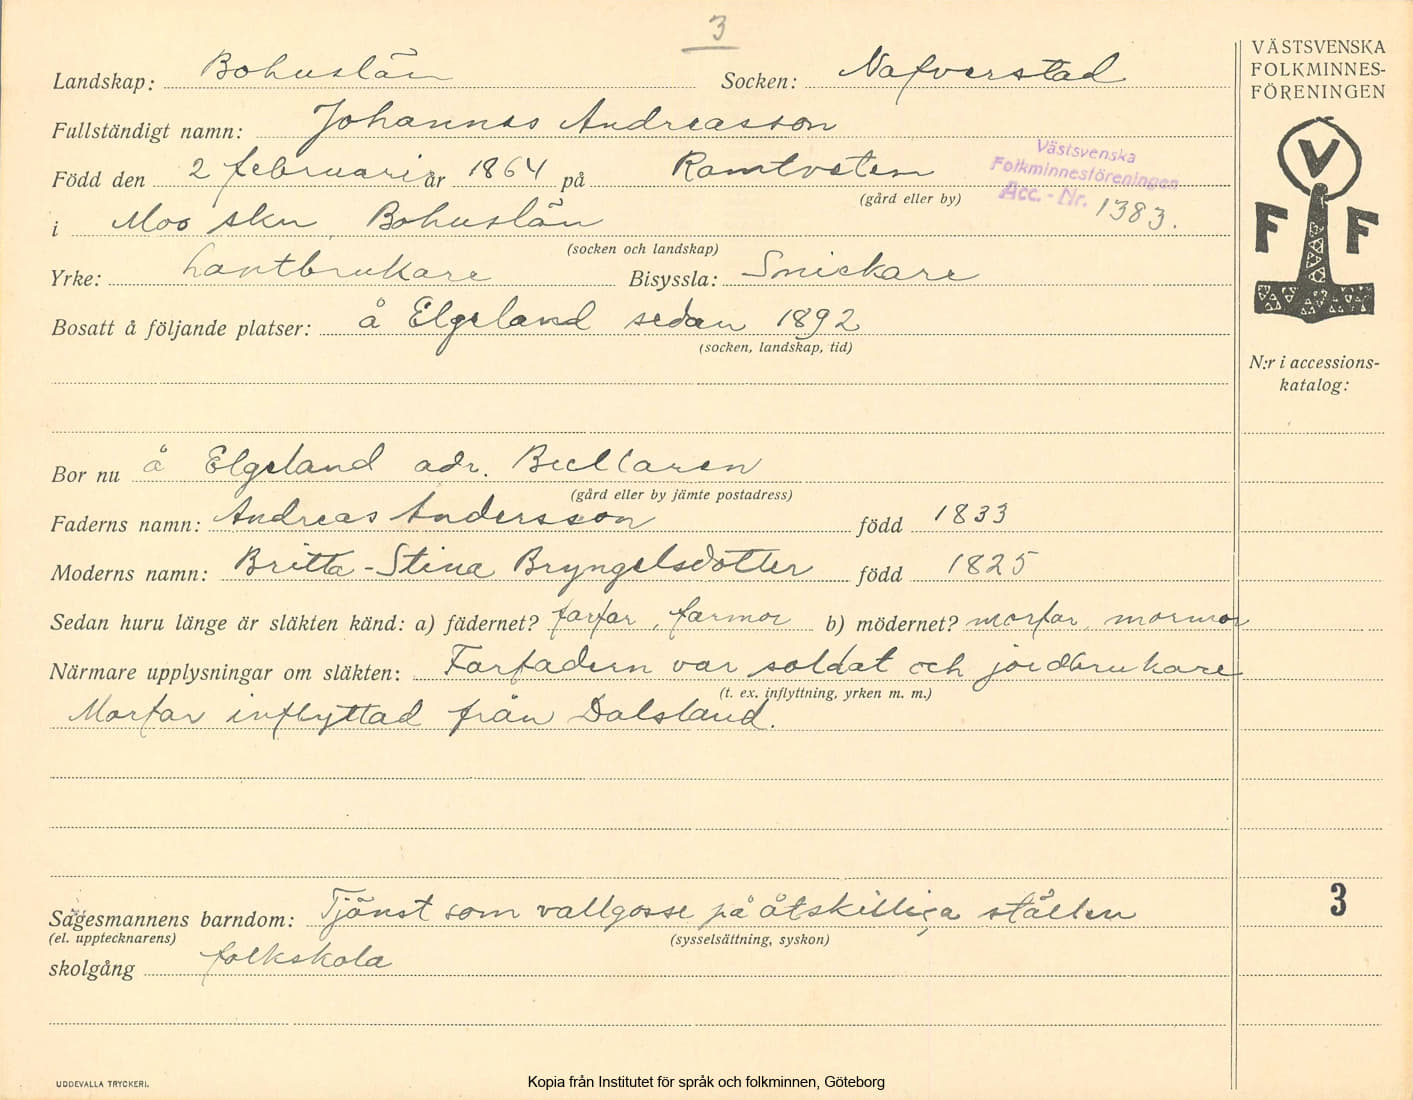 3
Landskap: Bohuslän Socken: Nafverstad
Fullständigt namn: Johannes Andreasson
Född den 2 februari år 1864 på Ramtveten
(gård eller by)
Västsvenska
Folkminnesföreningen
Acc. - Nr. 1383.
i Moo skn, Bohuslän
(socken och landskap)
Yrke: Lantbrukare Bisyssla: Snickare
Bosatt å följande platser: å Elgeland sedan 1892
(socken, landskap, tid)
Bor nu å Elgeland adr. Bullaren
(gård eller by jämte postadress)
Faderns namn: Andreas Andersson född 1833
Moderns namn: Britta-Stina Bryngelsdotter född 1825
Sedan huru länge är släkten känd: a) fädernet? farfar, farmor b) mödernet? morfar, mormor
Närmare upplysningar om släkten: Farfadern var soldat och jordbrukare
(t. ex. inflyttning, yrken m. m.)
Morfar inflyttad från Dalsland.
Sagesmannens barndom: Tjänst som vallgosse på åtskilliga ställen
(el. upptecknarens) (sysselsättning, syskon)
skolgång folkskola
UDDEVALLA TRYCKERI.
Kopia från Institutet för språk och folkminnen, Göteborg
VÄSTSVENSKA
FOLKMINNES-
FÖRENINGEN
V
F F
N:r i accessions-
katalog:
3